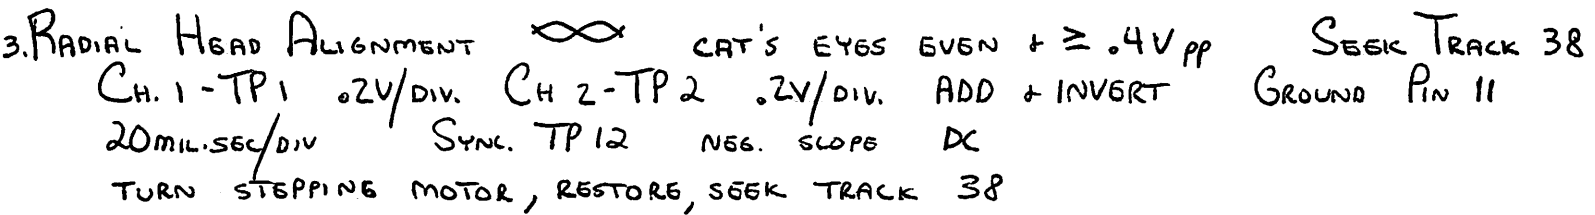 3. RADIAL HEAD ALIGNMENT CAT'S EYES EVEN + ≥ .4V PP SEEK TRACK 38
CH. 1 - TP 1 .2V/DIV. CH 2 - TP 2 .2V/DIV. ADD + INVERT GROUND PIN 11
20 MIL.SEC/DIV SYNC. TP 12 NEG. SLOPE DC
TURN STEPPING MOTOR, RESTORE, SEEK TRACK 38